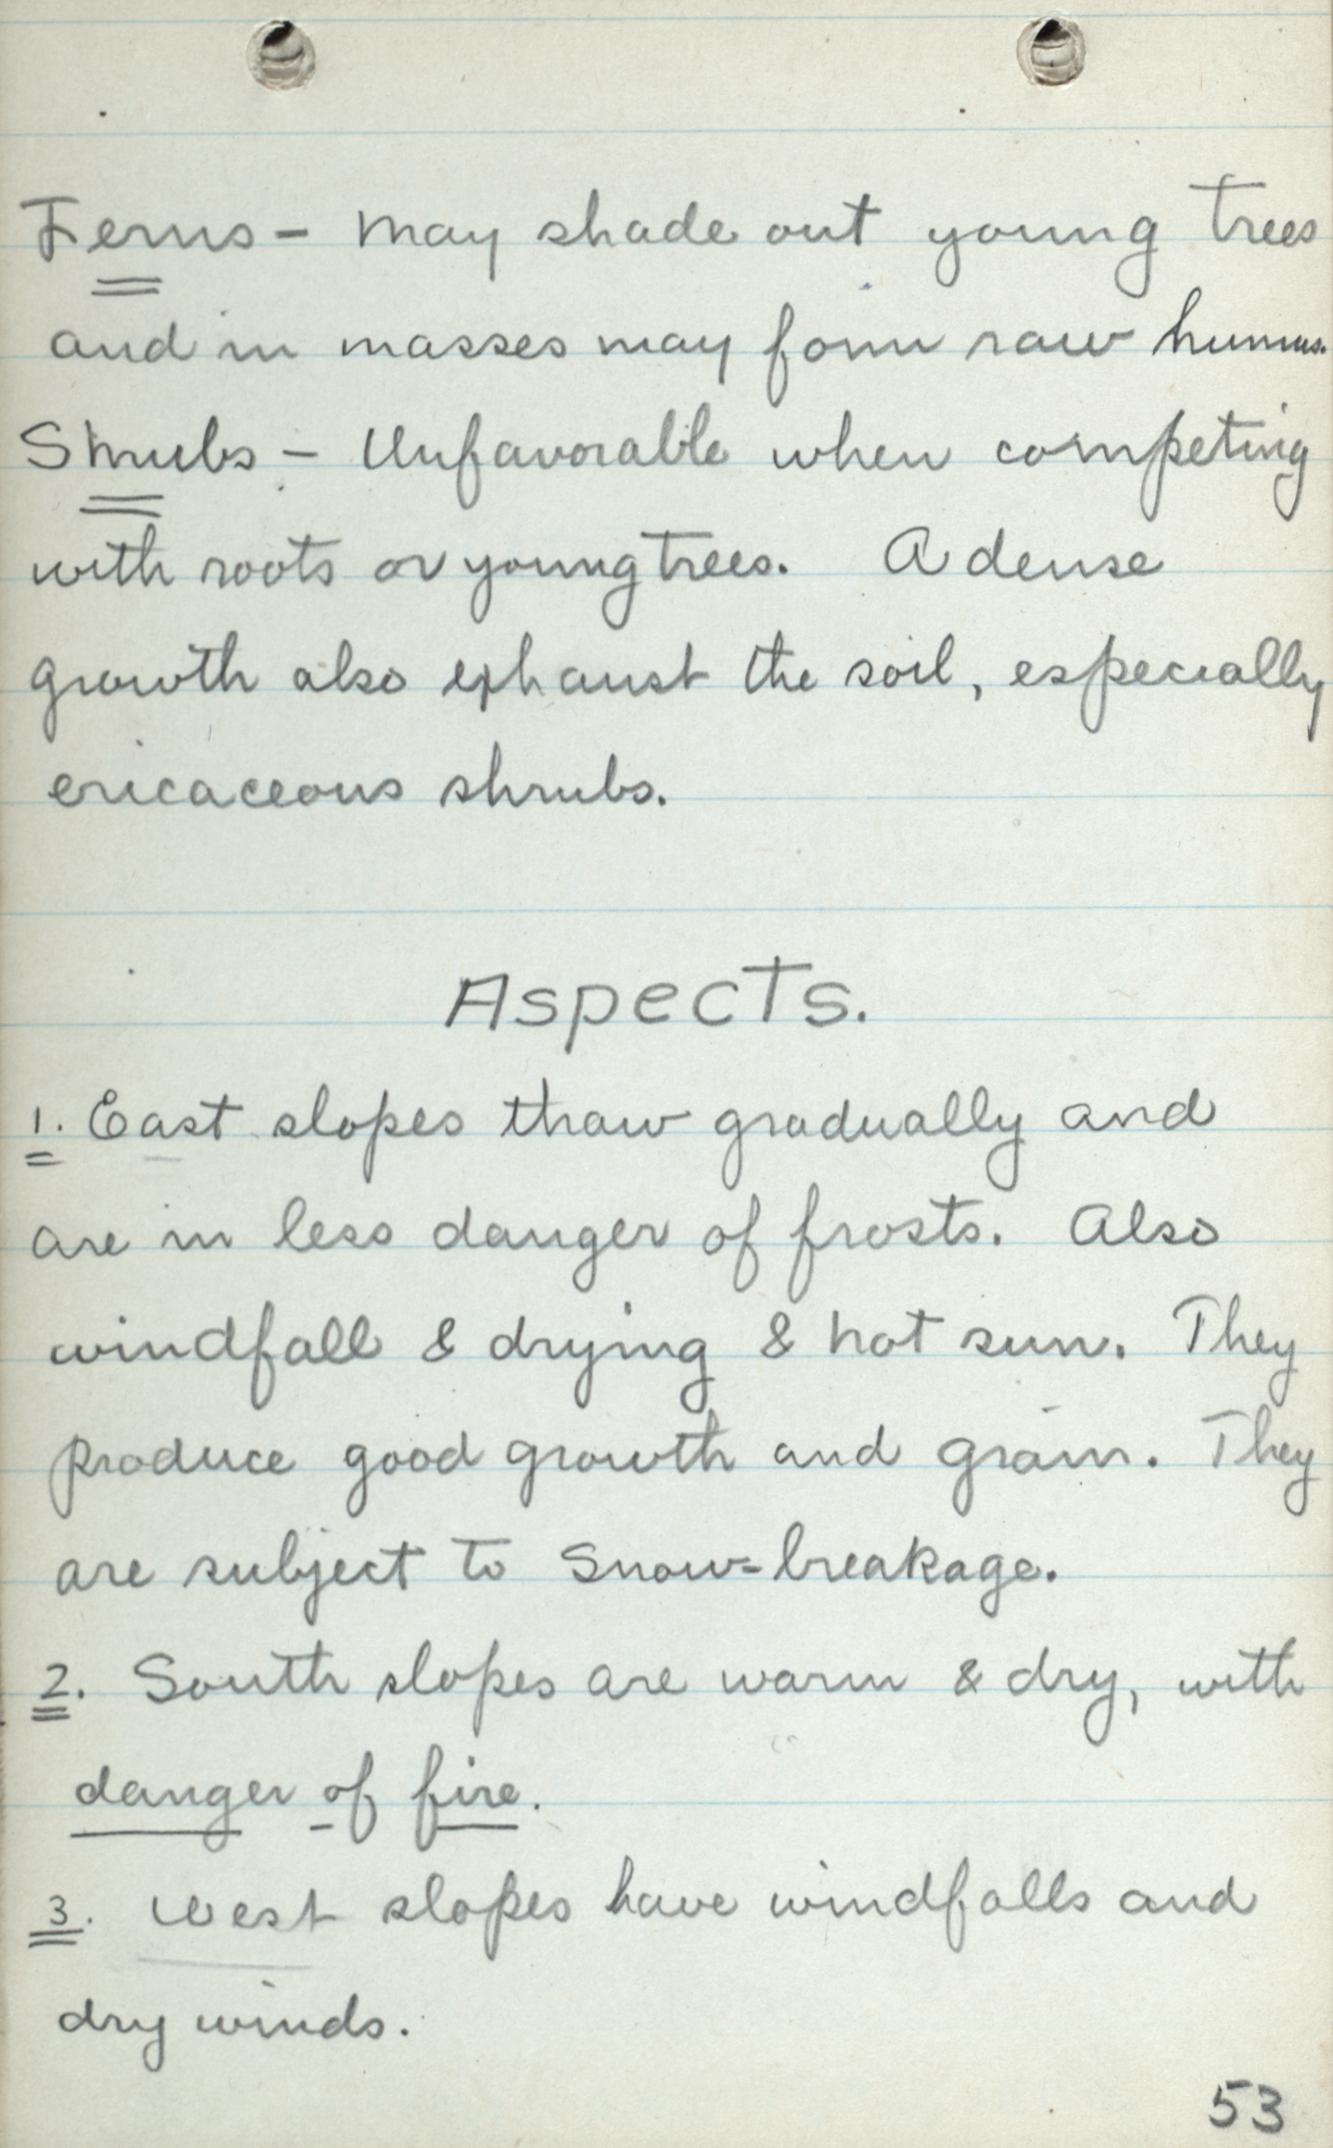 Ferns - May shade out young trees
and in masses may form raw humus.
Shrubs - Unfavorable when competing
with roots or young trees. A dense
growth also exhaust the soil, especially
ericaceous shrubs.
Aspects.
1. East slopes thaw gradually and
are in less danger of frosts. Also
windfall & drying & hot sun. They
produce good growth and grain. They
are subject to snow-breakage.
2. South slopes are warm & dry, with
danger of fire.
3. West slopes have windfalls and
dry winds.
53